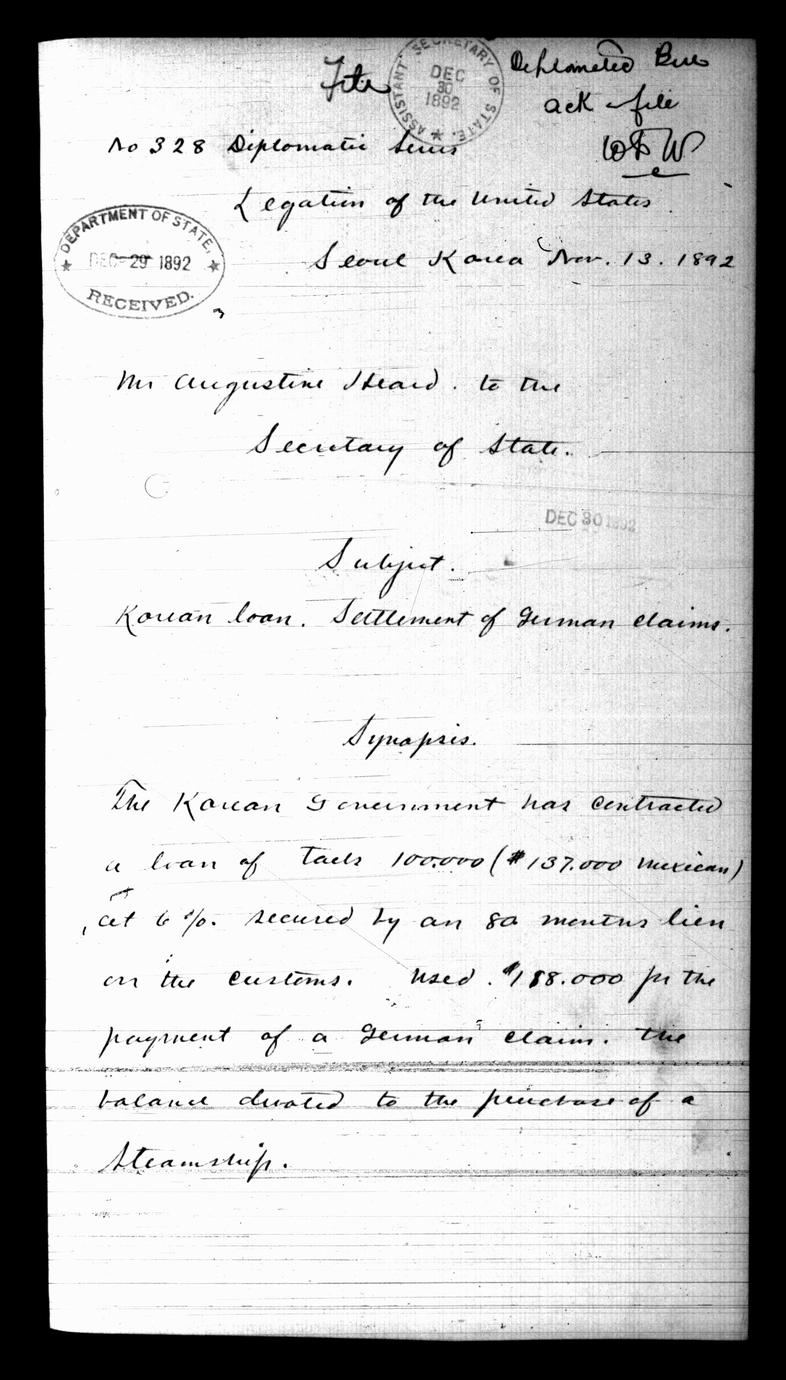 File
ASSISTANT SECRETARY OF STATE.
DEC
30
1892
Diplomatic
ack & file
WFW
No 328 Diplomatic Series
Legation of the United States
DEPARTMENT OF STATE,
DEC 29 1892
RECEIVED.
Seoul Korea Nov. 13. 1892
Mr Augustine Heard. to the
Secretary of State.
DEC 30 1892
Subject.
Korean loan. Settlement of German claims.
Synopsis.
The Korean Government has contracted
a loan of Taels 100.000 ($137.000 Mexican)
at 6 %. secured by an 80 months lien
on the customs. Used. $188.000 for the
payment of a German claim. the
balance devoted to the purchase of a
Steamship.